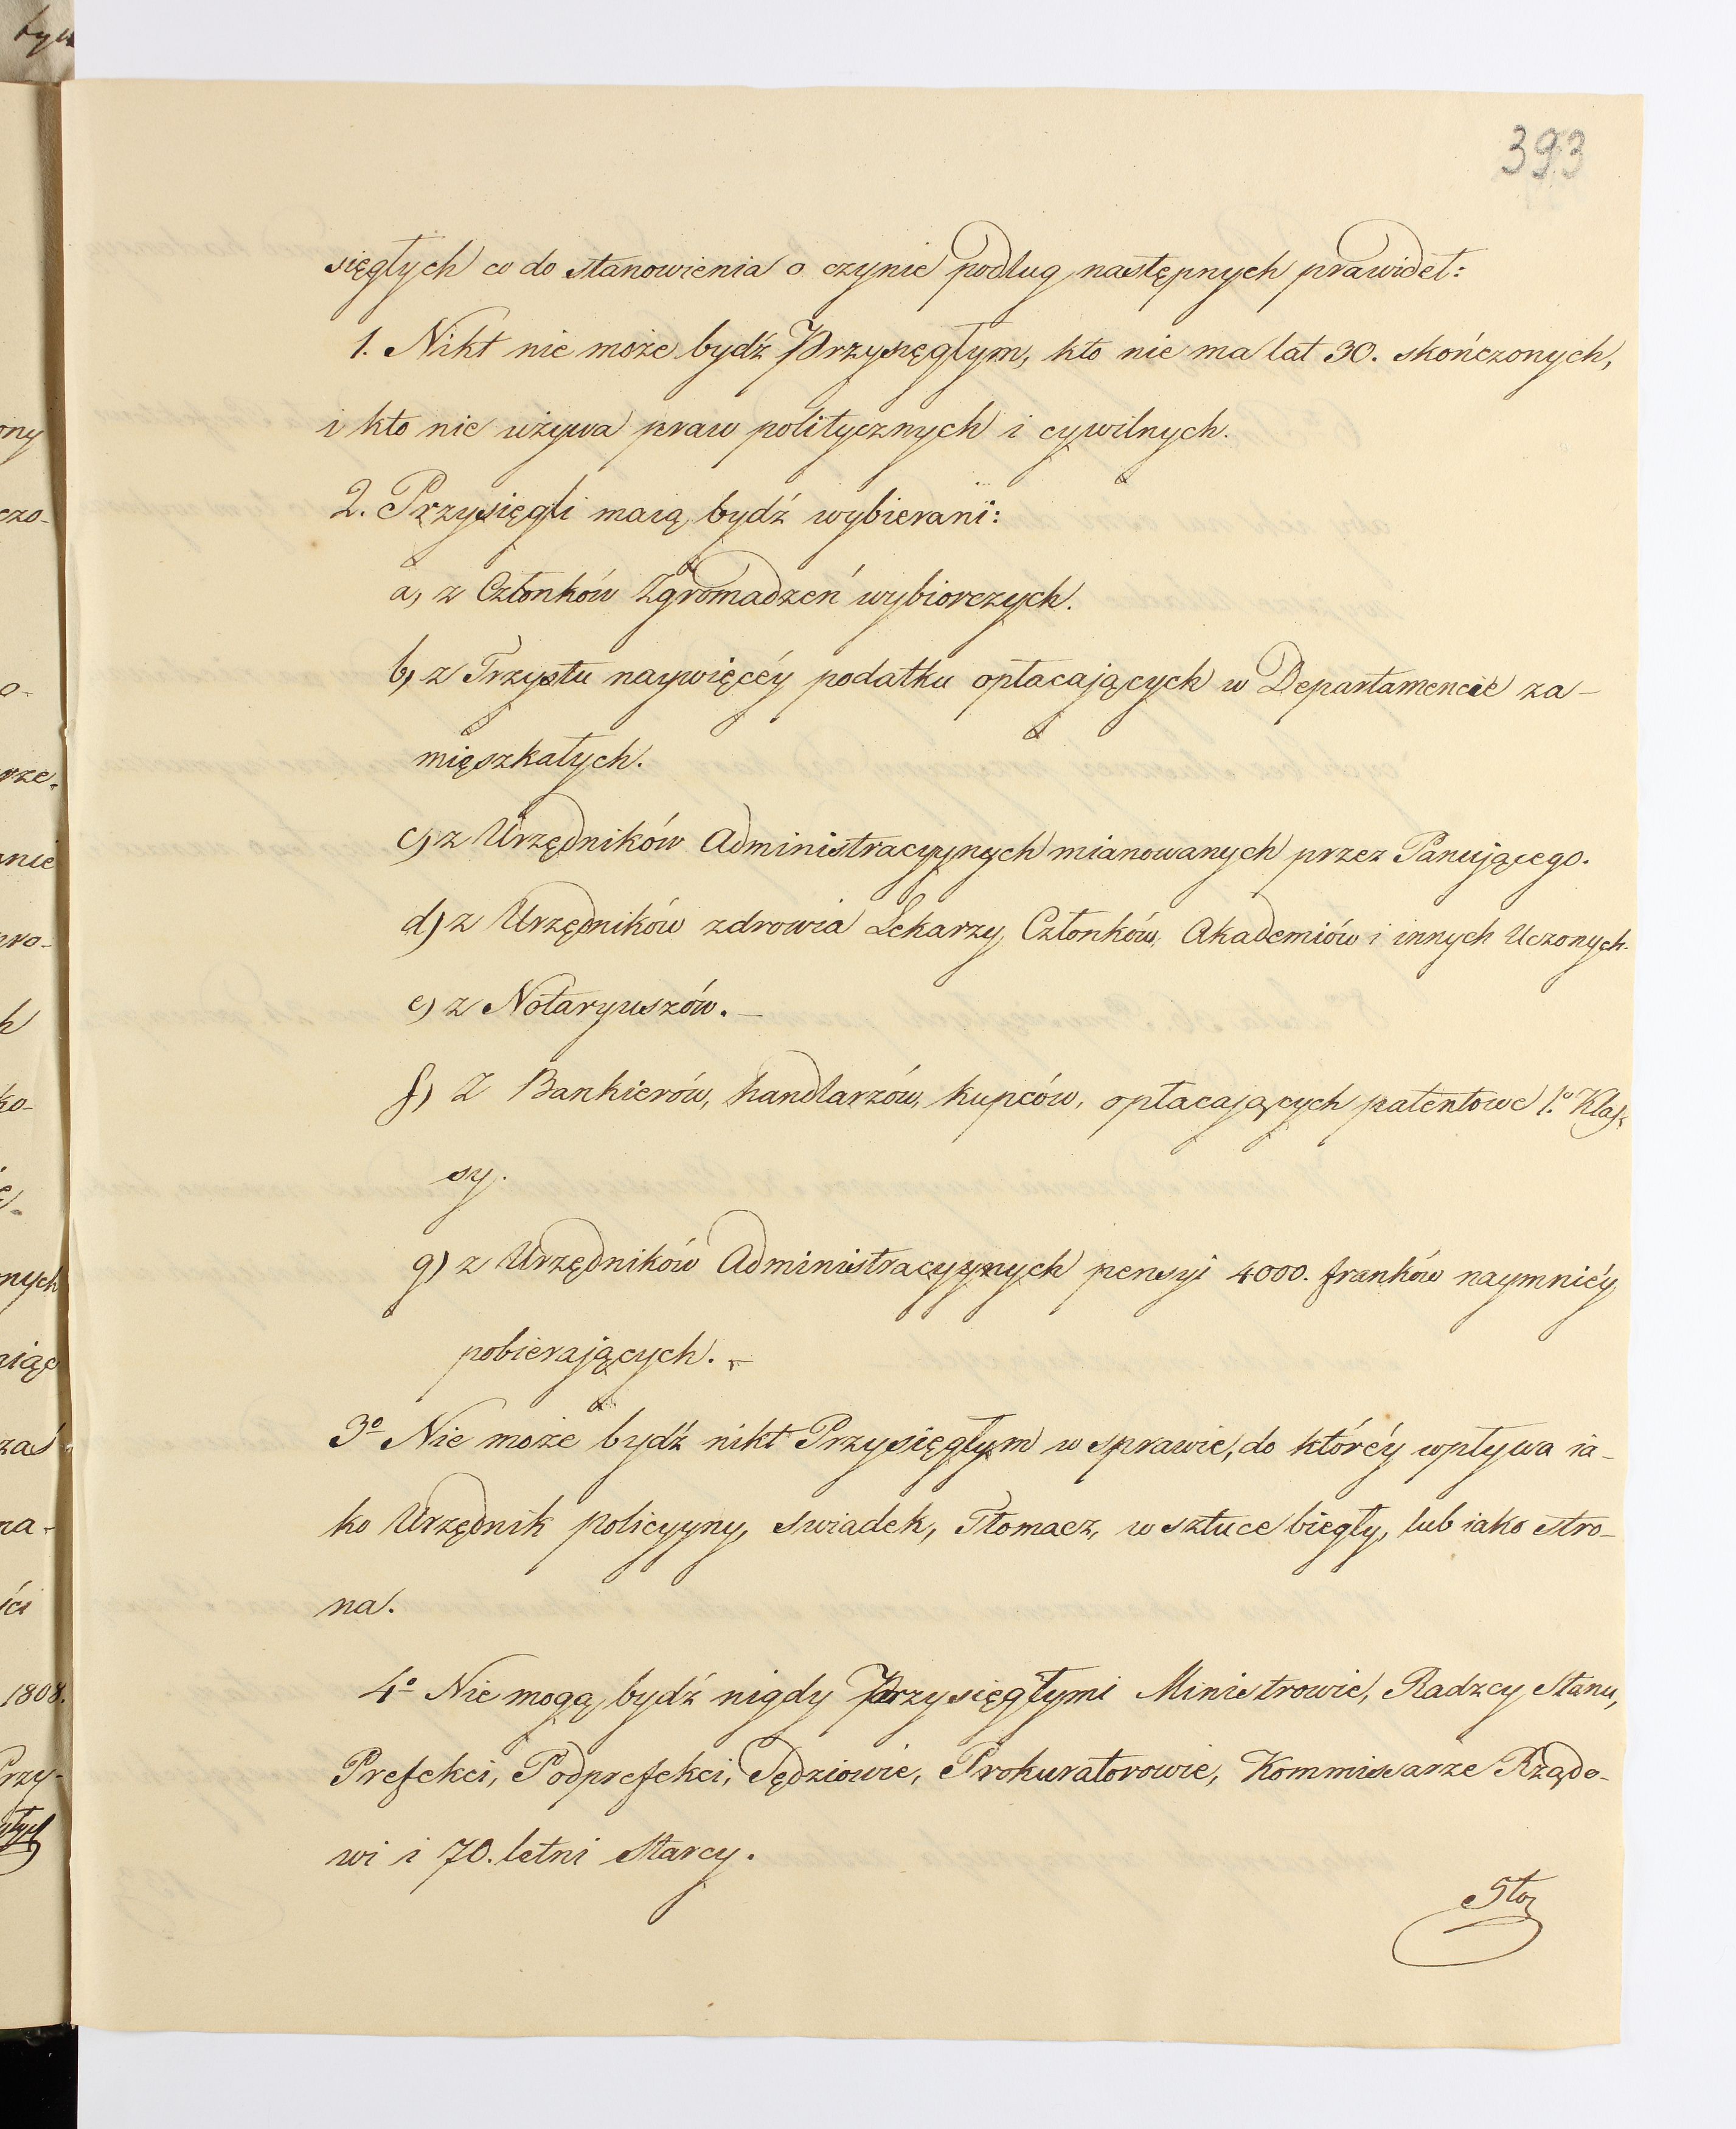 393
sięgłych co do stanowienia o czynie podług następnych prawideł:
1. Nikt nie może bydź Przysięgłym, kto nie ma lat 30. skończonych,
i kto nie używa praw politycznych i cywilnych.
2. Przysięgli maią bydź wybierani:
a, z Członków Zgromadzeń wybiorczych.
b, z Trzystu naywięcéy podatku opłacających w Departamencie za-
mięszkałych.
c, z Urzędników Administracyynych mianowanych przez Panującego.
d) z Urzędników zdrowia Lekarzy, Członków, Akademiów i innych Uczonych.
e) z Notaryuszów. —
f) Z Bankierów, handlarzów, kupców, opłacających patentowe 1.º Klas-
sy.
g) z Urzędników Administracyynych pensyi 4000. franków naymniéy
pobierających. -
3º Nie może bydź nikt Przysięgłym w sprawie, do któréy wpływa ia-
ko Urzędnik policyyny, swiadek, Tłomacz, w sztuce biegły, lub iako stro-
na.
4º Nie mogą bydź nigdy Przysięgłymi Ministrowie, Radzcy Stanu,
Prefekci, Podprefekci, Sędziowie, Prokuratorowie, Kommissarze Rządo-
wi i 70. letni Starcy.
Sto